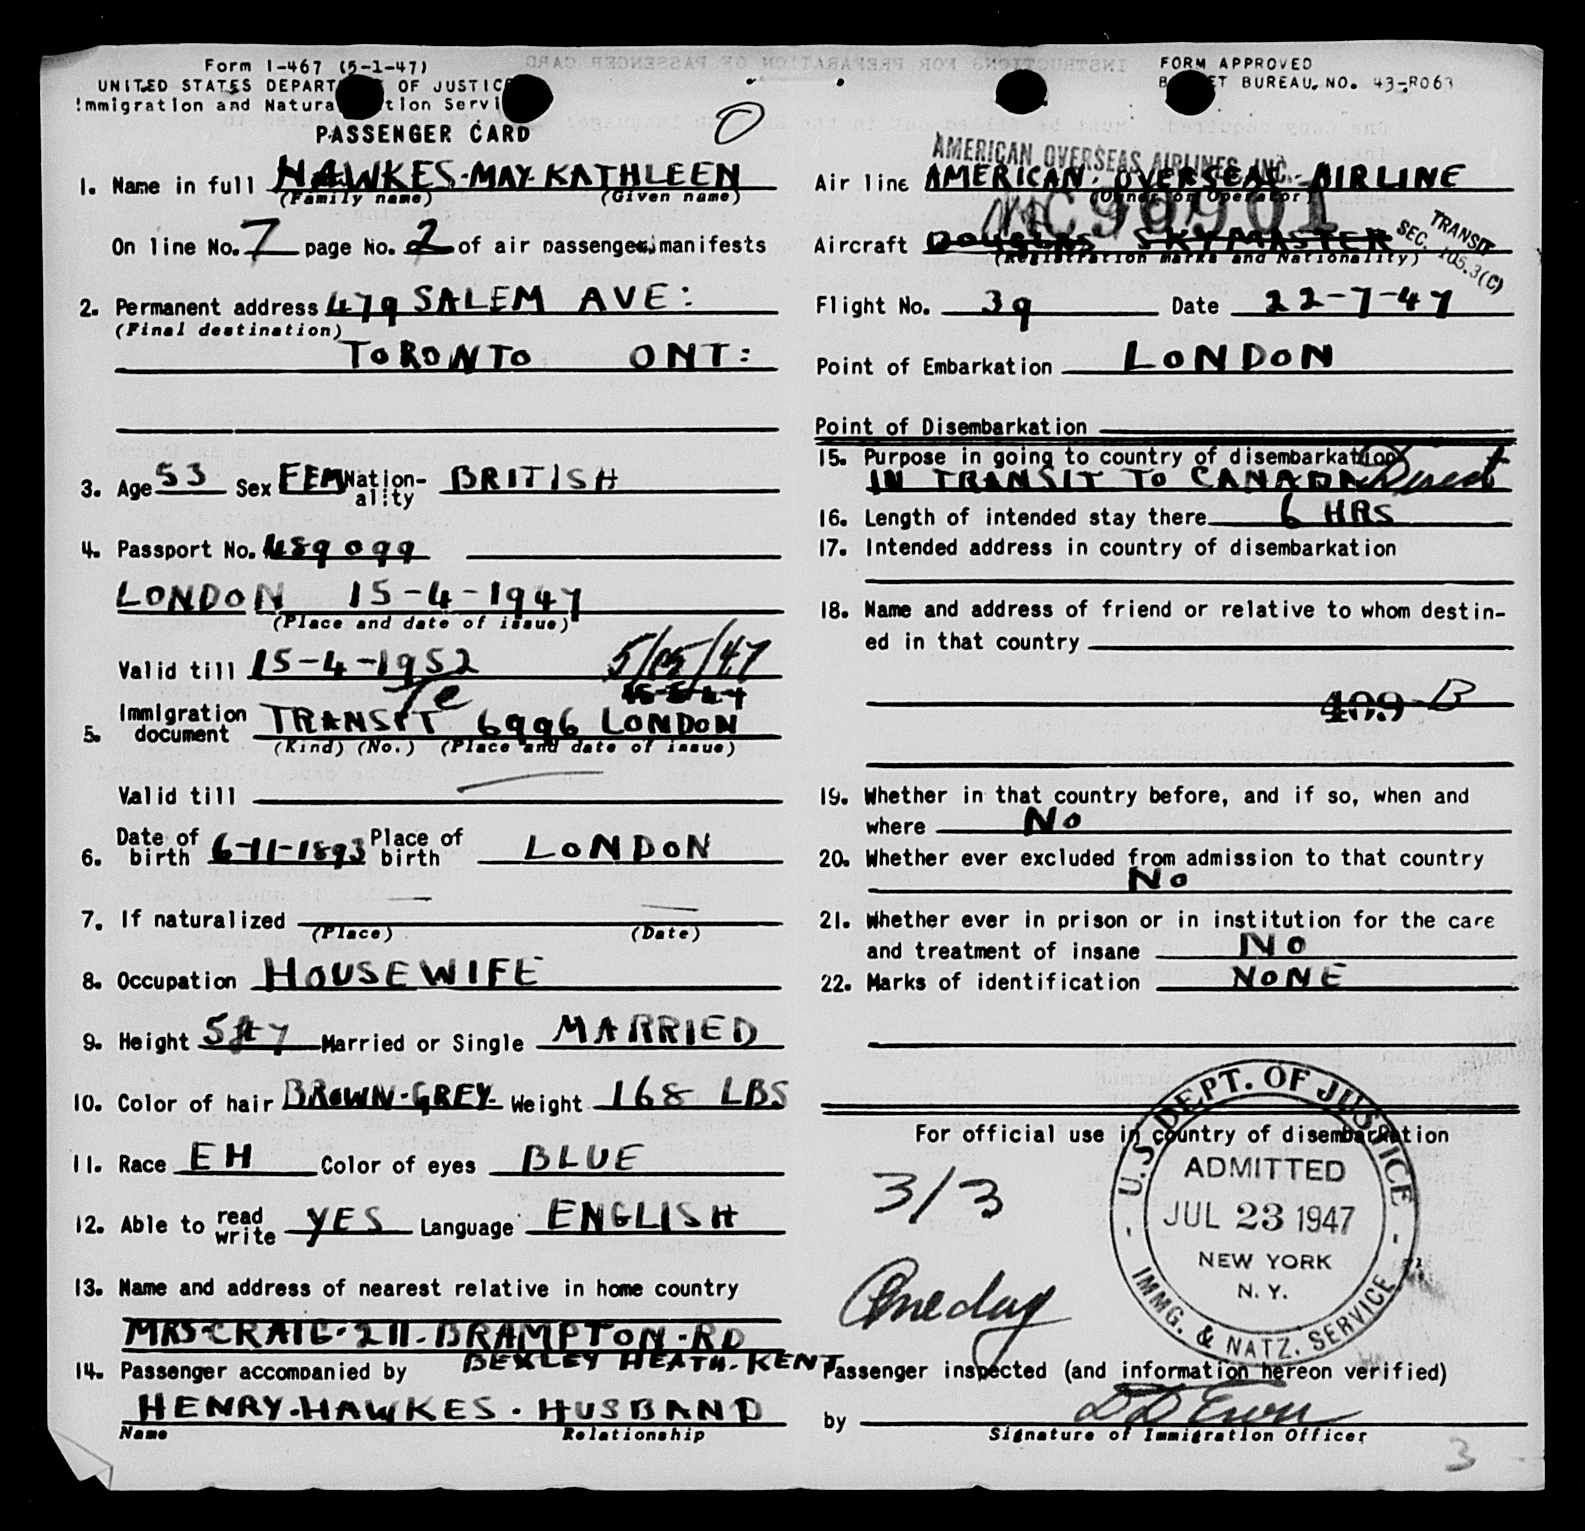 Form I-467 (5-1-47)
UNITED STATES DEPART OF JUSTIC
Immigration and Natura tion Servi
PASSENGER CARD
O
1. Name in full HAWKES-MAY-KATHLEEN
(Family name) (Given name)
On line No. 7 page No. 2 of air passenger manifests
2. Permanent address 479 SALEM AVE:
(Final destination)
TORONTO ONT:
3. Age 53 Sex FEM Nation-ality BRITISH
4. Passport No. 489099
LONDON 15-4-1947
(Place and date of issue)
Valid till 15-4-1952 5/15/47
5. Immigration document TRANSIT 6996 LONDON
(Kind) (No.) (Place and date of issue)
Valid till
6. Date of birth 6-11-1893 Place of birth LONDON
7. If naturalized
(Place) (Date)
8. Occupation HOUSEWIFE
9. Height 5ft 7 Married or Single MARRIED
10. Color of hair BROWN-GREY- Weight 168 LBS
11. Race EH Color of eyes BLUE
12. Able to read write YES Language ENGLISH
13. Name and address of nearest relative in home country
MRS-CRAIG-211-BRAMPTON-RD
BEXLEY HEATH-KENT
14. Passenger accompanied by
HENRY-HAWKES-HUSBAND
Name Relationship
FORM APPROVED
B ET BUREAU NO. 43-R063
AMERICAN OVERSEAS AIRLINES, INC.
Air line AMERICAN-OVERSEAS-AIRLINE
(Owner or Operator)
NC90901
Aircraft DOUGLAS SKYMASTER
(Registration marks and Nationality)
TRANSIT
SEC. 105.3(C)
Flight No. 39 Date 22-7-47
Point of Embarkation LONDON
Point of Disembarkation
15. Purpose in going to country of disembarkation
IN TRANSIT TO CANADA Direct
16. Length of intended stay there 6 HRS
17. Intended address in country of disembarkation
18. Name and address of friend or relative to whom destin-
ed in that country
409-B
19. Whether in that country before, and if so, when and
where No
20. Whether ever excluded from admission to that country
No
21. Whether ever in prison or in institution for the care
and treatment of insane No
22. Marks of identification NONE
For official use in country of disembarkation
3/3
One day
U.S. DEPT. OF JUSTICE
ADMITTED
JUL 23 1947
NEW YORK
N. Y.
IMMG. & NATZ. SERVICE
Passenger inspected (and information hereon verified)
by
Signature of Immigration Officer
3